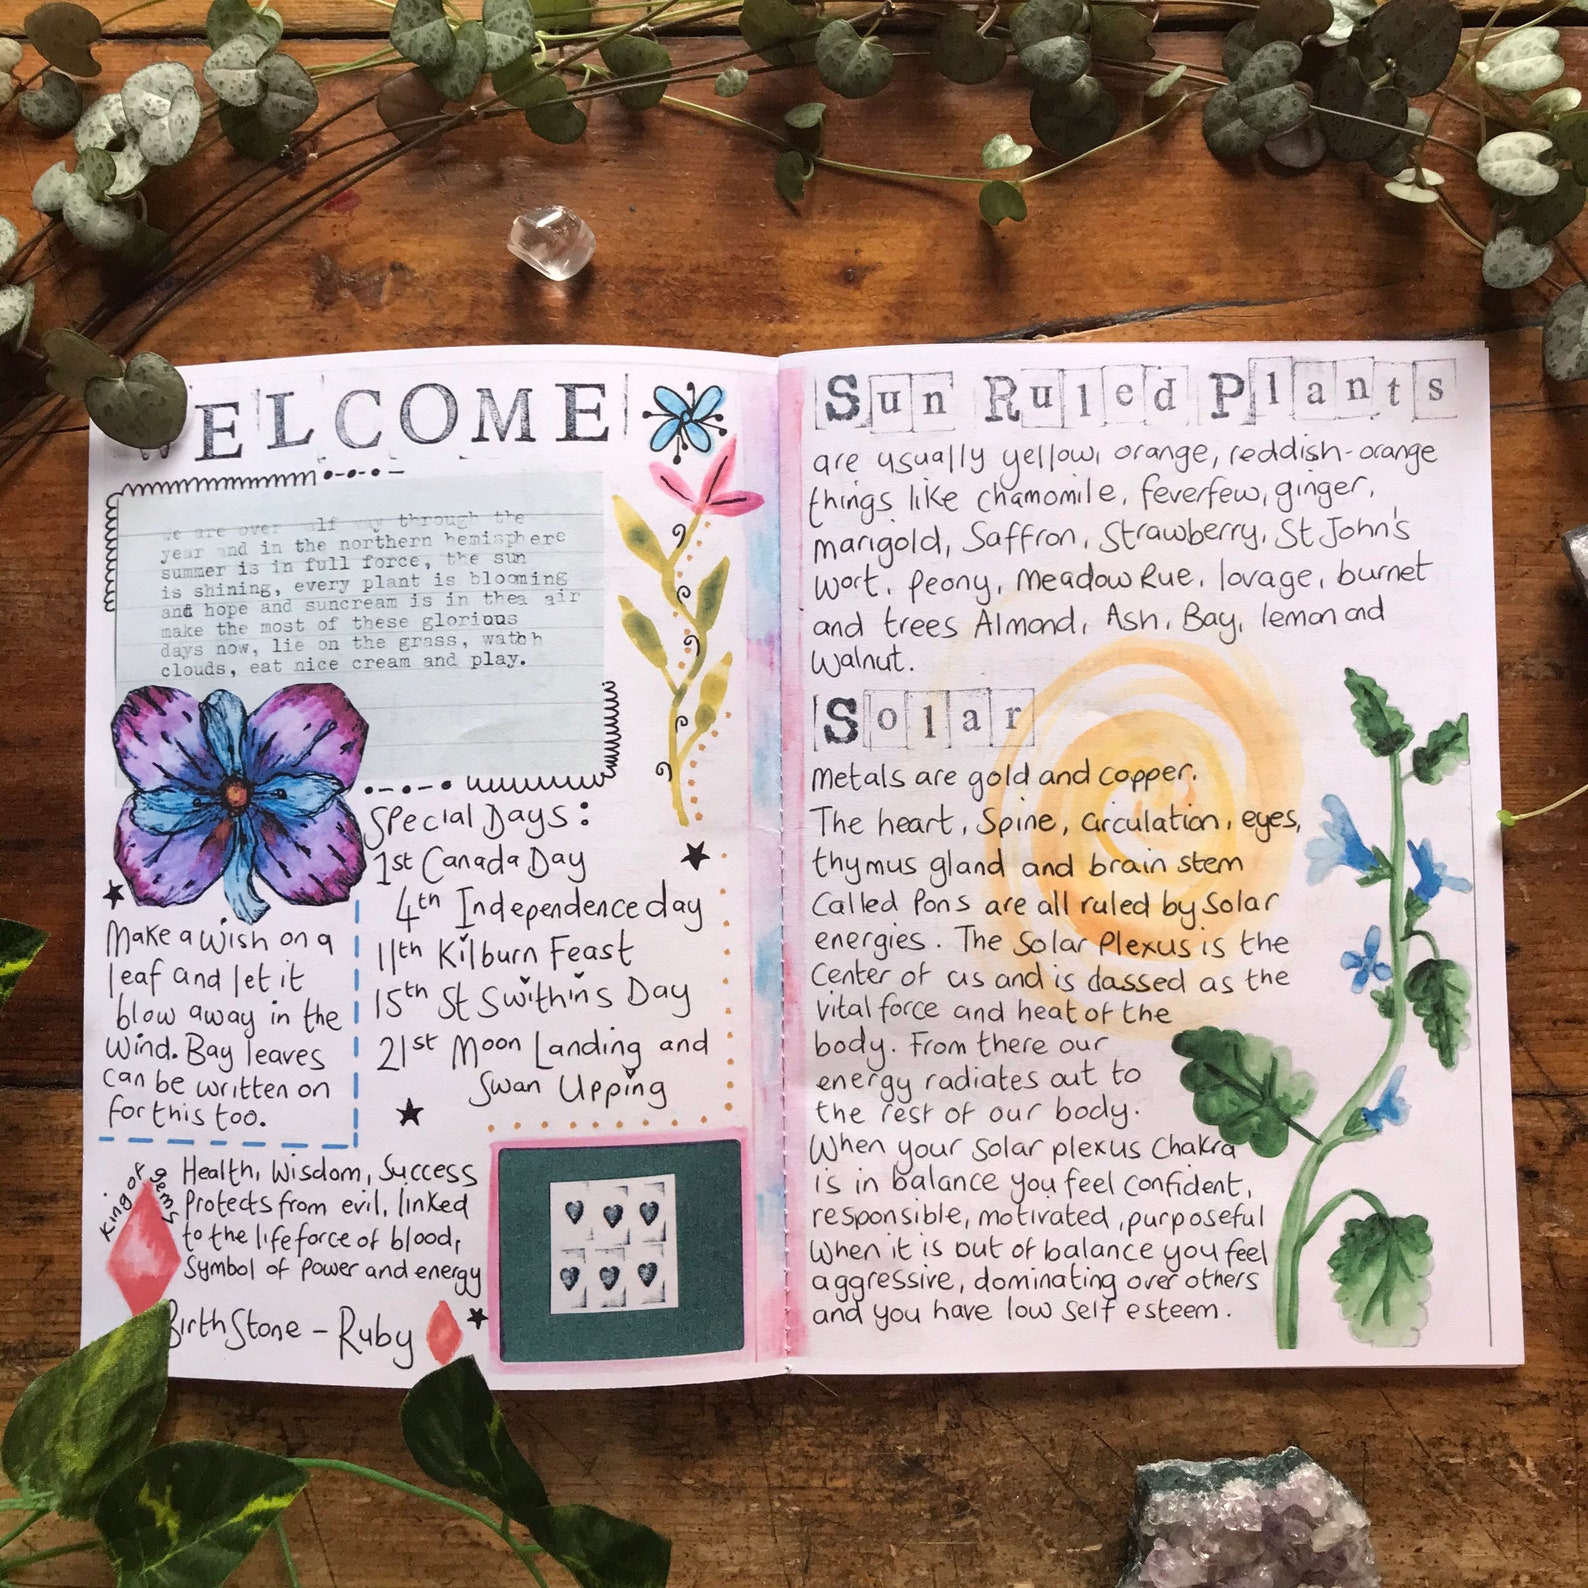 WELCOME
we are over half way through the
year and in the northern hemisphere
summer is in full force, the sun
is shining, every plant is blooming
and hope and suncream is in thea air
make the most of these glorious
days now, lie on the grass, watch
clouds, eat nice cream and play.
Special Days:
1st Canada Day
4th Independence day
11th Kilburn Feast
15th St Swithins Day
21st Moon Landing and
Swan Upping
Make a wish on a
leaf and let it
blow away in the
wind. Bay leaves
can be written on
for this too.
King of gems
Health, Wisdom, Success
Protects from evil, linked
to the life force of blood,
Symbol of Power and energy
Birth Stone - Ruby
Sun Ruled Plants
are usually yellow, orange, reddish-orange
things like chamomile, feverfew, ginger,
marigold, Saffron, Strawberry, St John's
Wort, Peony, Meadow Rue, lovage, burnet
and trees Almond, Ash, Bay, lemon and
Walnut.
Solar
Metals are gold and copper.
The heart, Spine, Circulation, eyes,
thymus gland and brain stem
Called Pons are all ruled by Solar
energies. The Solar Plexus is the
Center of us and is classed as the
vital force and heat of the
body. From there our
energy radiates out to
the rest of our body.
When your Solar plexus Chakra
is in balance you feel Confident,
responsible, motivated, purposeful
When it is out of balance you feel
aggressive, dominating over others
and you have low self esteem.